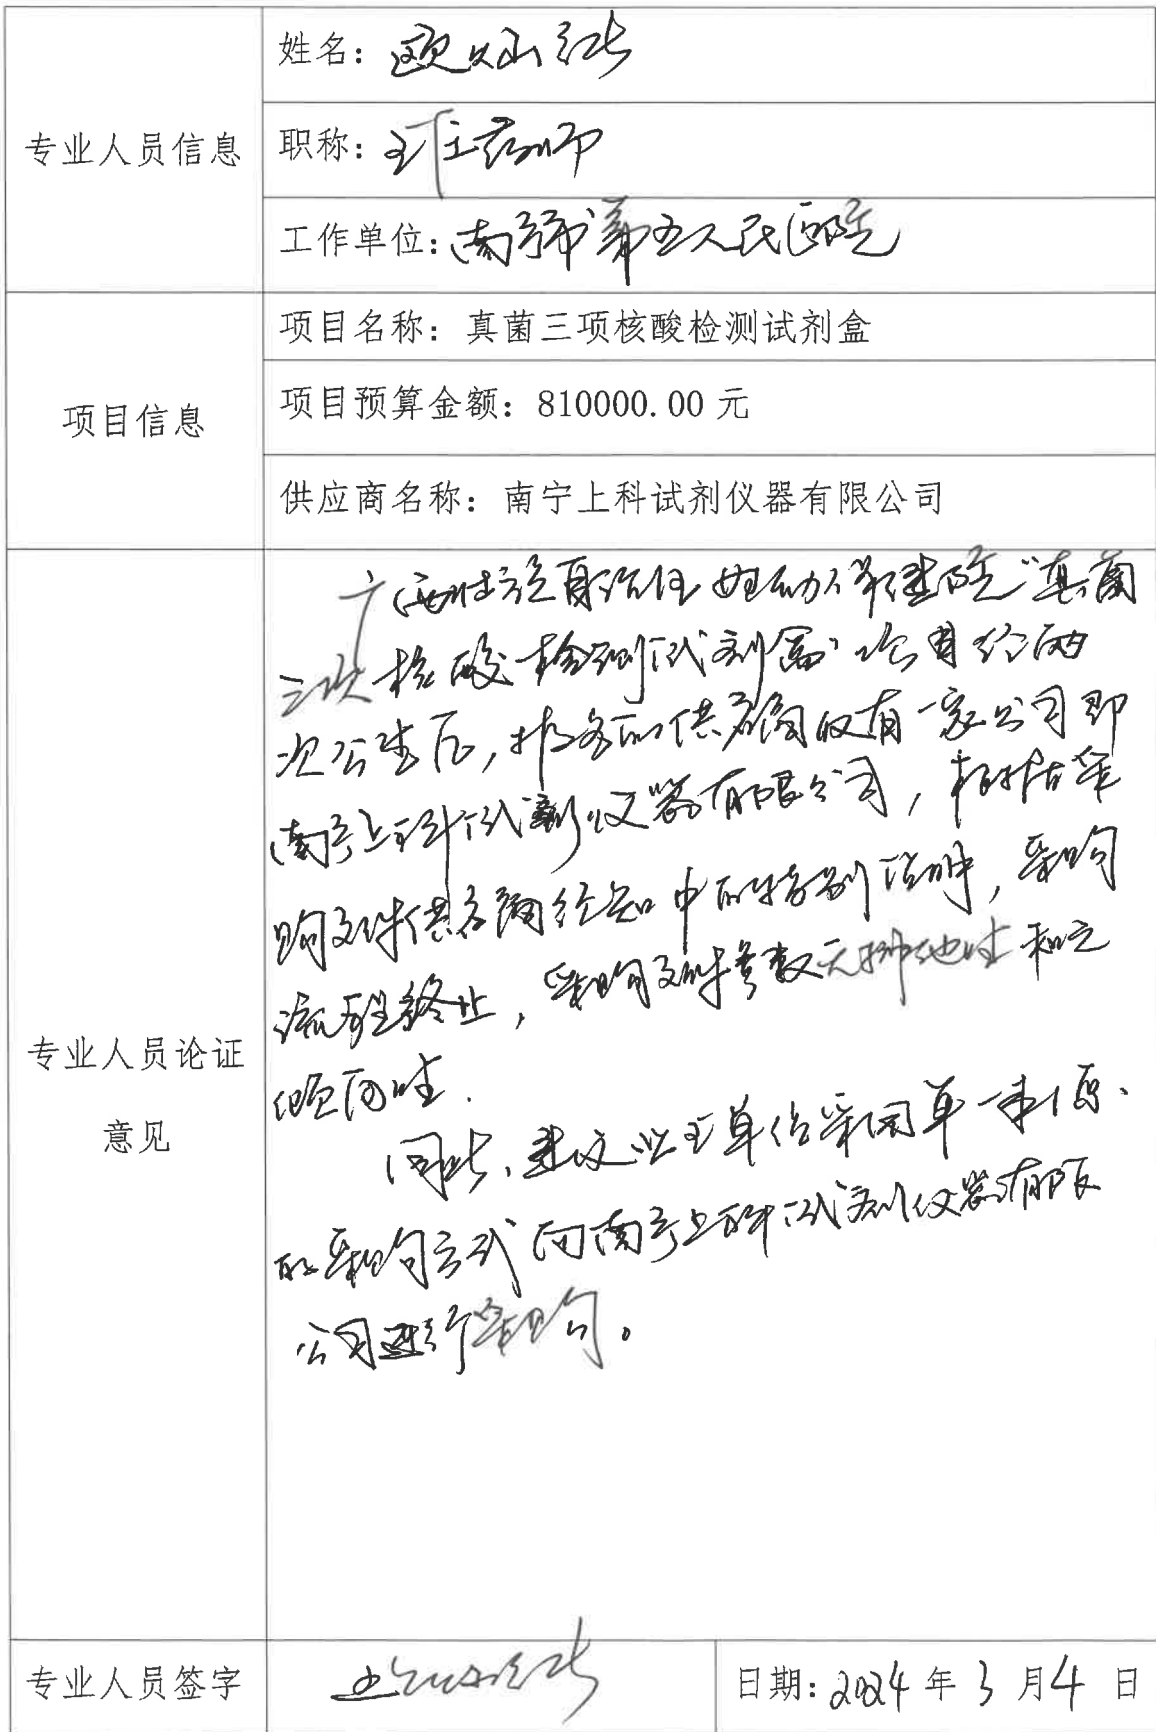 专业人员信息
姓名：欧灿红
职称：主任药师
工作单位：南宁市第五人民医院
项目信息
项目名称：真菌三项核酸检测试剂盒
项目预算金额：810000.00 元
供应商名称：南宁上科试剂仪器有限公司
专业人员论证
意见
广西壮族自治区妇幼保健院“真菌
三项核酸检测试剂盒”项目经两
次公告后，报名的供应商仅有一家公司即
南宁上科试剂仪器有限公司，根据采
购文件供应商须知中的特别说明，采购
流程终止，采购文件参数无排他性和无
倾向性.
因此，建议业主单位采用单一来源
的采购方式向南宁上科试剂仪器有限
公司进行采购。
专业人员签字
日期：2024 年 3 月 4 日